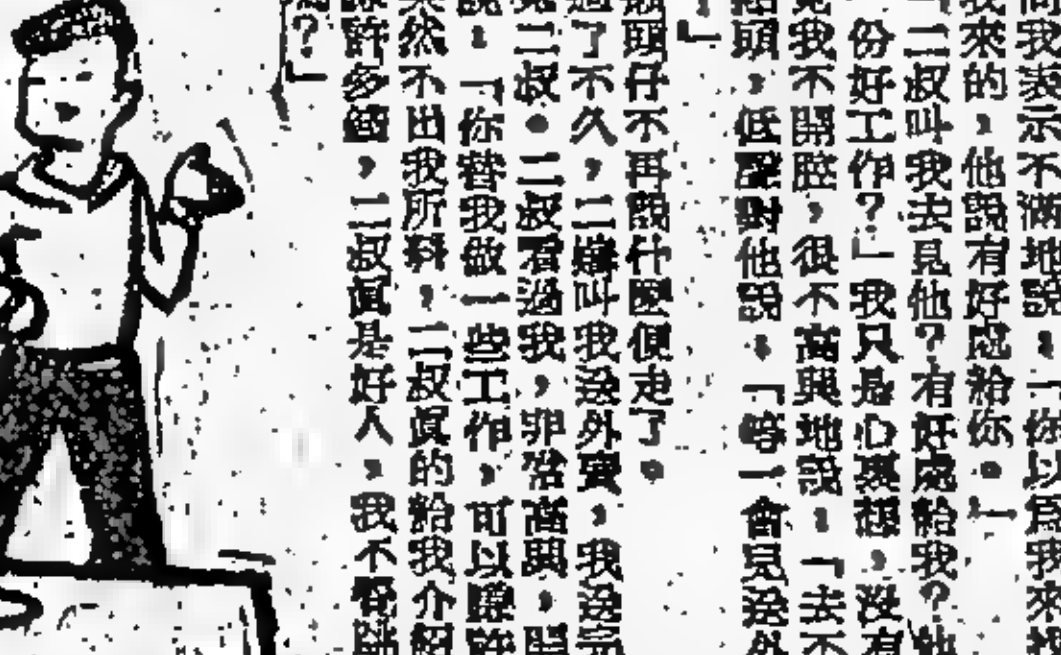 我表示不滿地說：「你以爲我來
我來的，他說有好處給你。」
二叔叫我去見他？有好處給我？他
份好工作？」我只是心裏想，沒有
我不開腔，很不高興地說：「去不
頭，低聲對他說：「等一會兒送外
」
頭仔不再說什麼便走了。
了不久，二嬸叫我送外賣，我送完
二叔。二叔看過我，非常高興，
：「你替我做一些工作，可以賺許
然不出我所料，二叔眞的給我介紹
許多錢，二叔眞是好人，我不
？」